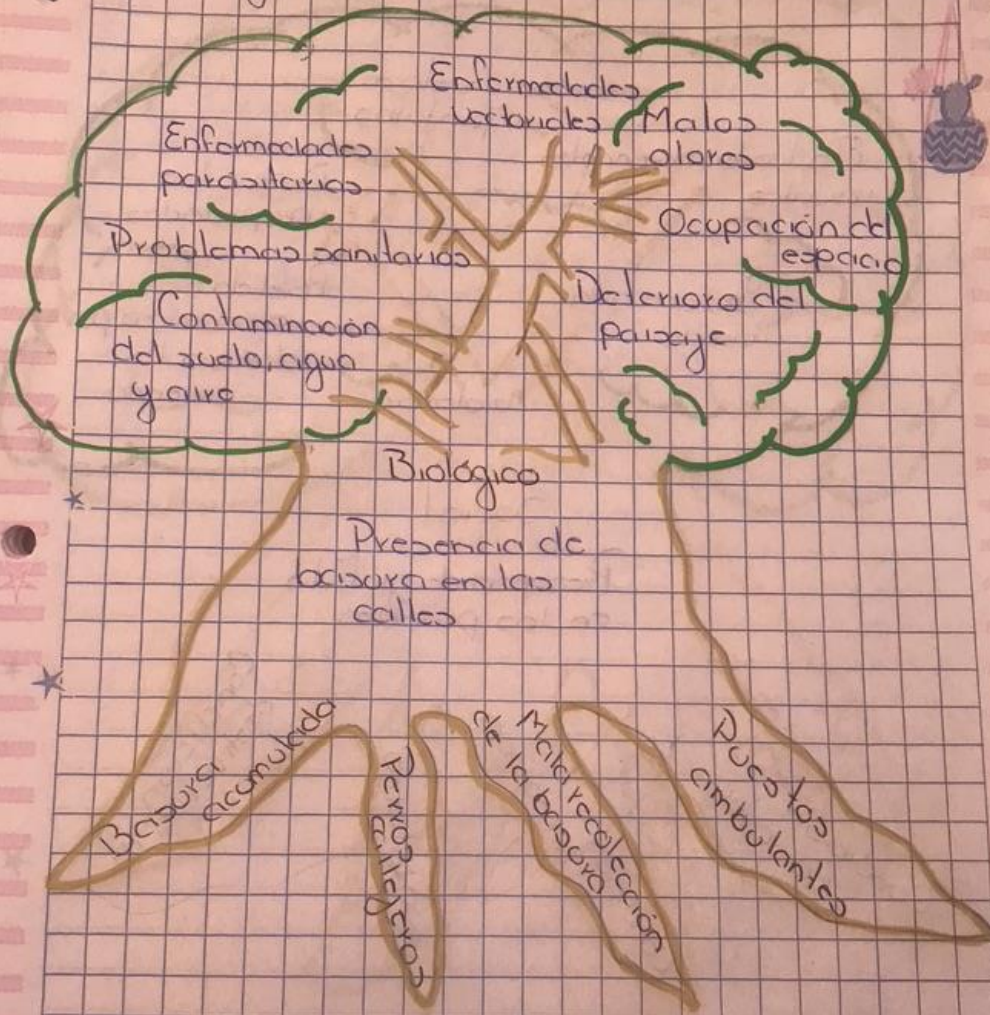 Enfermedades
vectoriales
Malos
olores
Enfermedades
parasitarias
Ocupación del
espacio
Problemas sanitarios
Deterioro del
paisaje
Contaminación
del suelo, agua
y aire
Biológico
Presencia de
basura en las
calles
Basura
acumulada
Perros
callejeros
Mala recolección
de la basura
Puestos
ambulantes